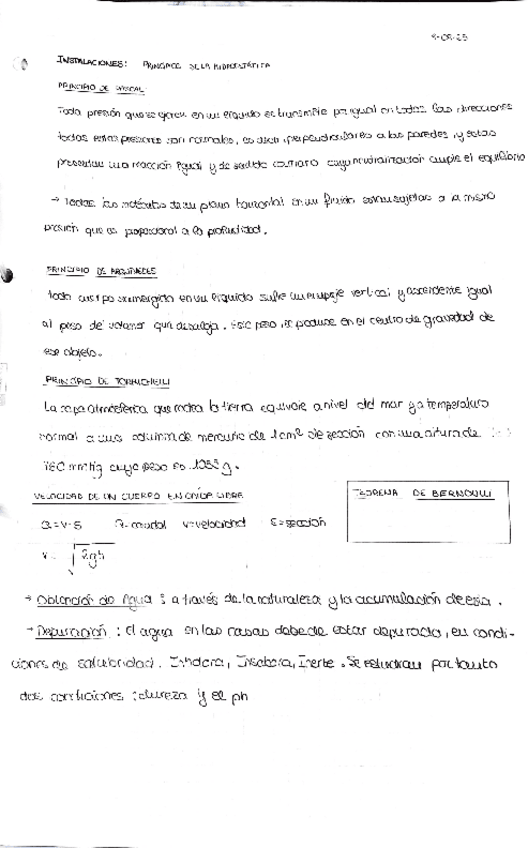 INSTALACIONES: PRINCIPIOS DE LA HIDROSTÁTICA
PRINCIPIO DE PASCAL
Toda presión que se ejerce en un líquido se transmite por igual en todas las direcciones
todas estas presiones son normales, es decir, perpendiculares a las paredes y estas
presentan una reacción igual y de sentido contrario cuya neutralización cumple el equilibrio
→ Todas las moléculas de un plano horizontal en un fluido están sujetas a la misma
presión que es proporcional a la profundidad.
PRINCIPIO DE ARQUÍMEDES
Todo cuerpo sumergido en un líquido sufre un empuje vertical y ascendente igual
al peso del volumen que desaloja. Este peso se produce en el centro de gravedad de
ese objeto.
PRINCIPIO DE TORRICHELLI
La capa atmosférica que rodea la tierra equivale a nivel del mar y a temperatura
normal a una columna de mercurio de 1 cm² de sección con una altura de
760 mmHg cuyo peso es 1033 g.
VELOCIDAD DE UN CUERPO EN CAÍDA LIBRE
TEOREMA DE BERNOULLI
Q = V·S Q = caudal V = velocidad S = sección
V = √2gh
→ Obtención de Agua : a través de la naturaleza y la acumulación de esta.
→ Depuración : el agua en las casas debe de estar depurada, en condi-
ciones de salubridad. Inodora, Insabora, Inerte. Se estudian por tanto
dos condiciones : dureza y el ph